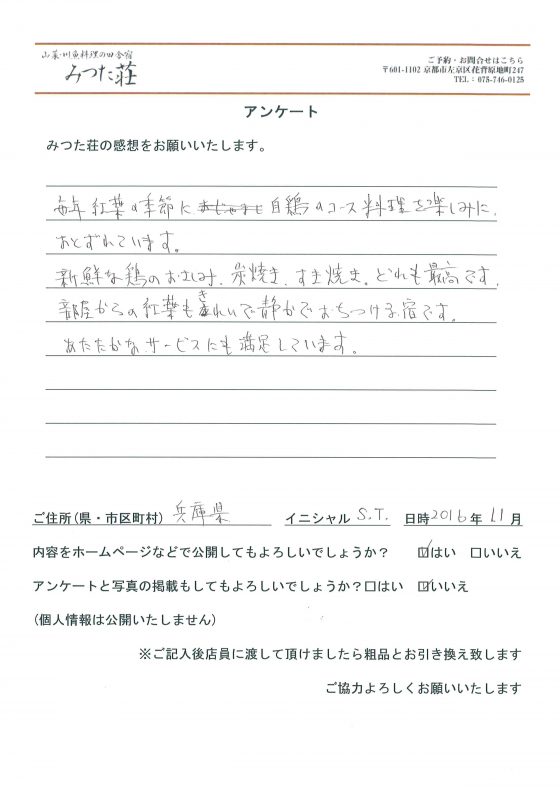 山菜・川魚料理の田舎宿
みつた荘
ご予約・お問合せはこちら
〒601-1102 京都市左京区花背原地町247
TEL：075-746-0125
アンケート
みつた荘の感想をお願いいたします。
毎年 紅葉の季節に おじゃまし 自鶏のコース料理を楽しみに、
おとずれています。
新鮮な鶏のおさしみ、炭焼き、すき焼き。どれも最高です。
部屋からの紅葉もきれいで静かでおちつける宿です。
あたたかなサービスにも満足しています。
ご住所(県・市区町村) 兵庫県 イニシャル S.T. 日時2016年 11月
内容をホームページなどで公開してもよろしいでしょうか？ ☑はい □いいえ
アンケートと写真の掲載もしてもよろしいでしょうか？□はい ☑いいえ
(個人情報は公開いたしません)
※ご記入後店員に渡して頂けましたら粗品とお引き換え致します
ご協力よろしくお願いいたします